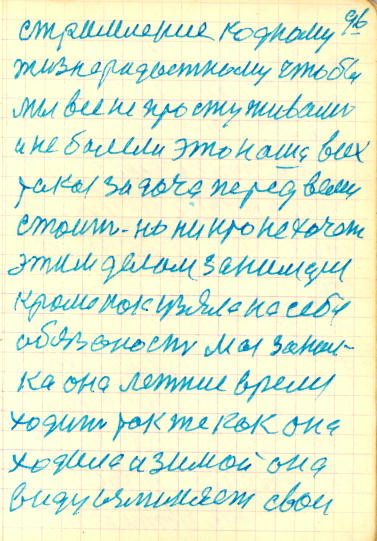 96
стремление к одному
жизнерадостному чтобы
мы все не простуживали
и не болели это наша всех
такая задача перед всеми
стоит - но никто не хочет
этим делом занимати
кроме пока взяла на себя
обязаности моя запач-
ка она летние время
ходит так же как она
ходила и зимой она
виду изминяет свои